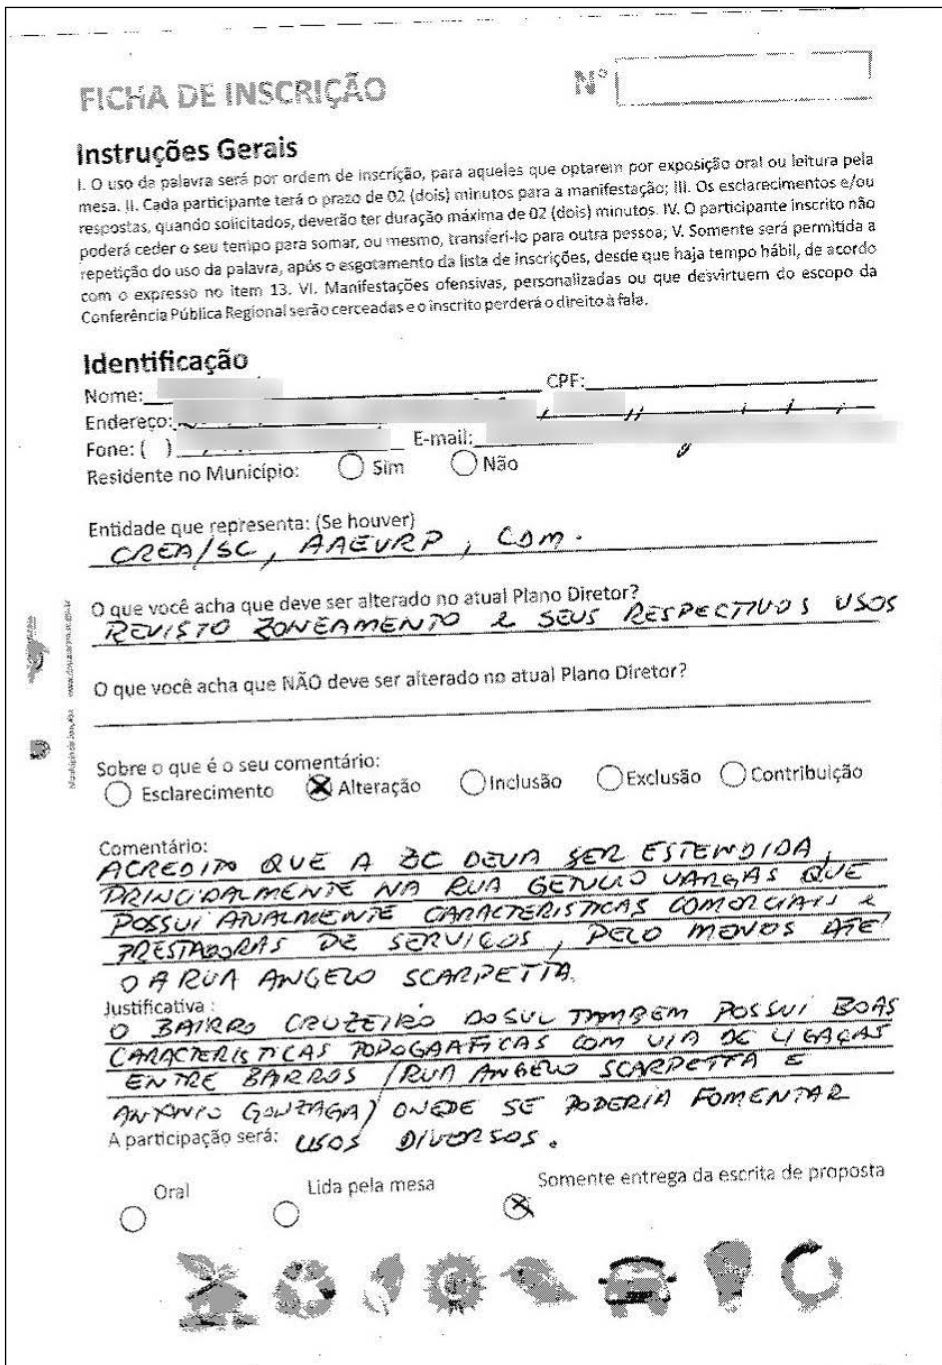 FICHA DE INSCRIÇÃO
N°
Instruções Gerais
I. O uso da palavra será por ordem de inscrição, para aqueles que optarem por exposição oral ou leitura pela
mesa. II. Cada participante terá o prazo de 02 (dois) minutos para a manifestação; III. Os esclarecimentos e/ou
respostas, quando solicitados, deverão ter duração máxima de 02 (dois) minutos. IV. O participante inscrito não
poderá ceder o seu tempo para somar, ou mesmo, transferi-lo para outra pessoa; V. Somente será permitida a
repetição do uso da palavra, após o esgotamento da lista de inscrições, desde que haja tempo hábil, de acordo
com o expresso no item 13. VI. Manifestações ofensivas, personalizadas ou que desvirtuem do escopo da
Conferência Pública Regional serão cerceadas e o inscrito perderá o direito à fala.
Identificação
Nome: CPF:
Endereço:
Fone: ( ) E-mail:
Residente no Município: Sim Não
Entidade que representa: (Se houver)
CREA/SC, AAEVRP, CDM.
O que você acha que deve ser alterado no atual Plano Diretor?
REVISTO ZONEAMENTO & SEUS RESPECTIVOS USOS
O que você acha que NÃO deve ser alterado no atual Plano Diretor?
Sobre o que é o seu comentário:
Esclarecimento Alteração Inclusão Exclusão Contribuição
Comentário:
ACREDITO QUE A ZC DEVA SER ESTENDIDA,
PRINCIPALMENTE NA RUA GETULIO VARGAS QUE
POSSUI ATUALMENTE CARACTERISTICAS COMERCIAIS &
PRESTADORAS DE SERVIÇOS, PELO MENOS ATÉ
O A RUA ANGELO SCARPETTA.
Justificativa :
O BAIRRO CRUZEIRO DO SUL TAMBEM POSSUI BOAS
CARACTERISTICAS TOPOGRAFICAS COM VIA DE LIGAÇAS
ENTRE BARROS (RUA ANGELO SCARPETTA E
ANTONIO GONZAGA) ONEDE SE PODERIA FOMENTAR
A participação será: USOS DIVERSOS.
Oral Lida pela mesa Somente entrega da escrita de proposta